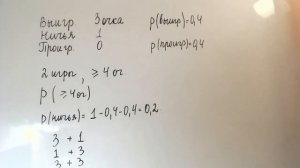 Выигр. 3 очка p(выигр)=0,4
Ничья 1
Проигр. 0 p(проигр)=0,4
2 игры, ≥ 4 оч
P(≥4оч)
p(ничья) = 1-0,4-0,4=0,2
3 + 1
1 + 3
3 + 3